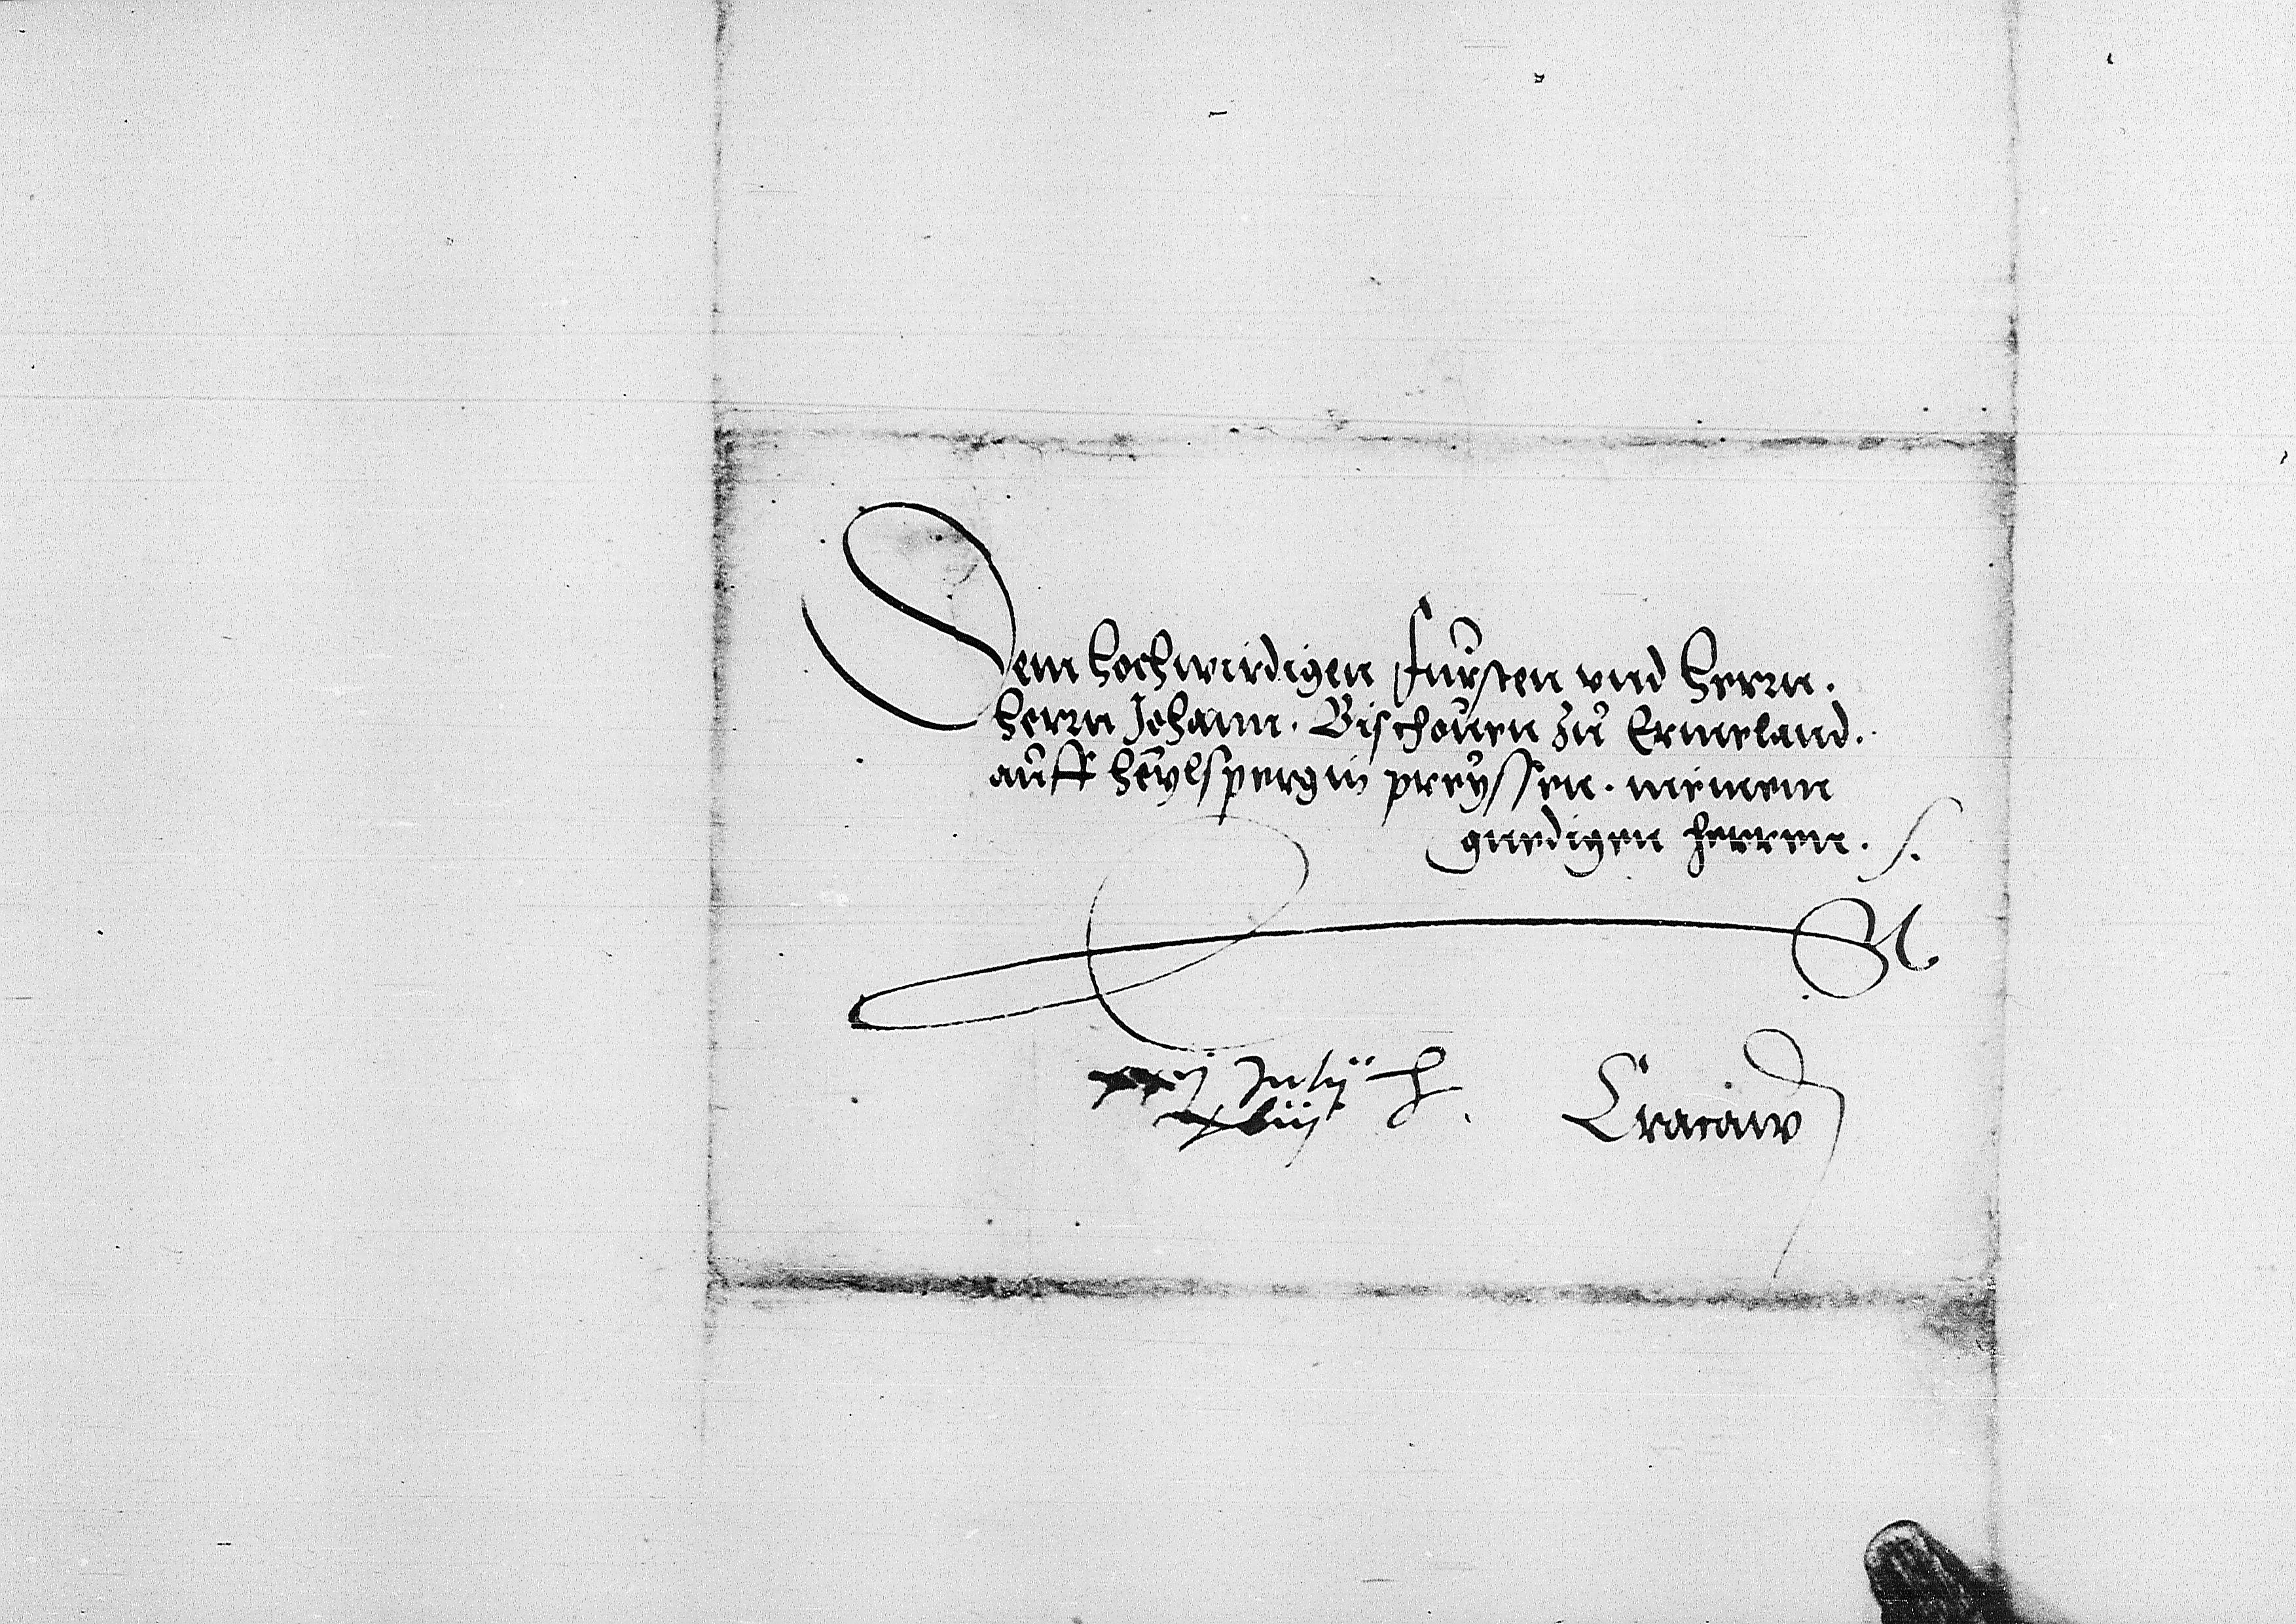 Dem hochwirdigen fursten vnd herrn.
herrn Johann. Bischouen zu Ermeland.
auff heylsperg in preyssen. meinem
gnedigen herren.
Julij
xliij
Cracaw